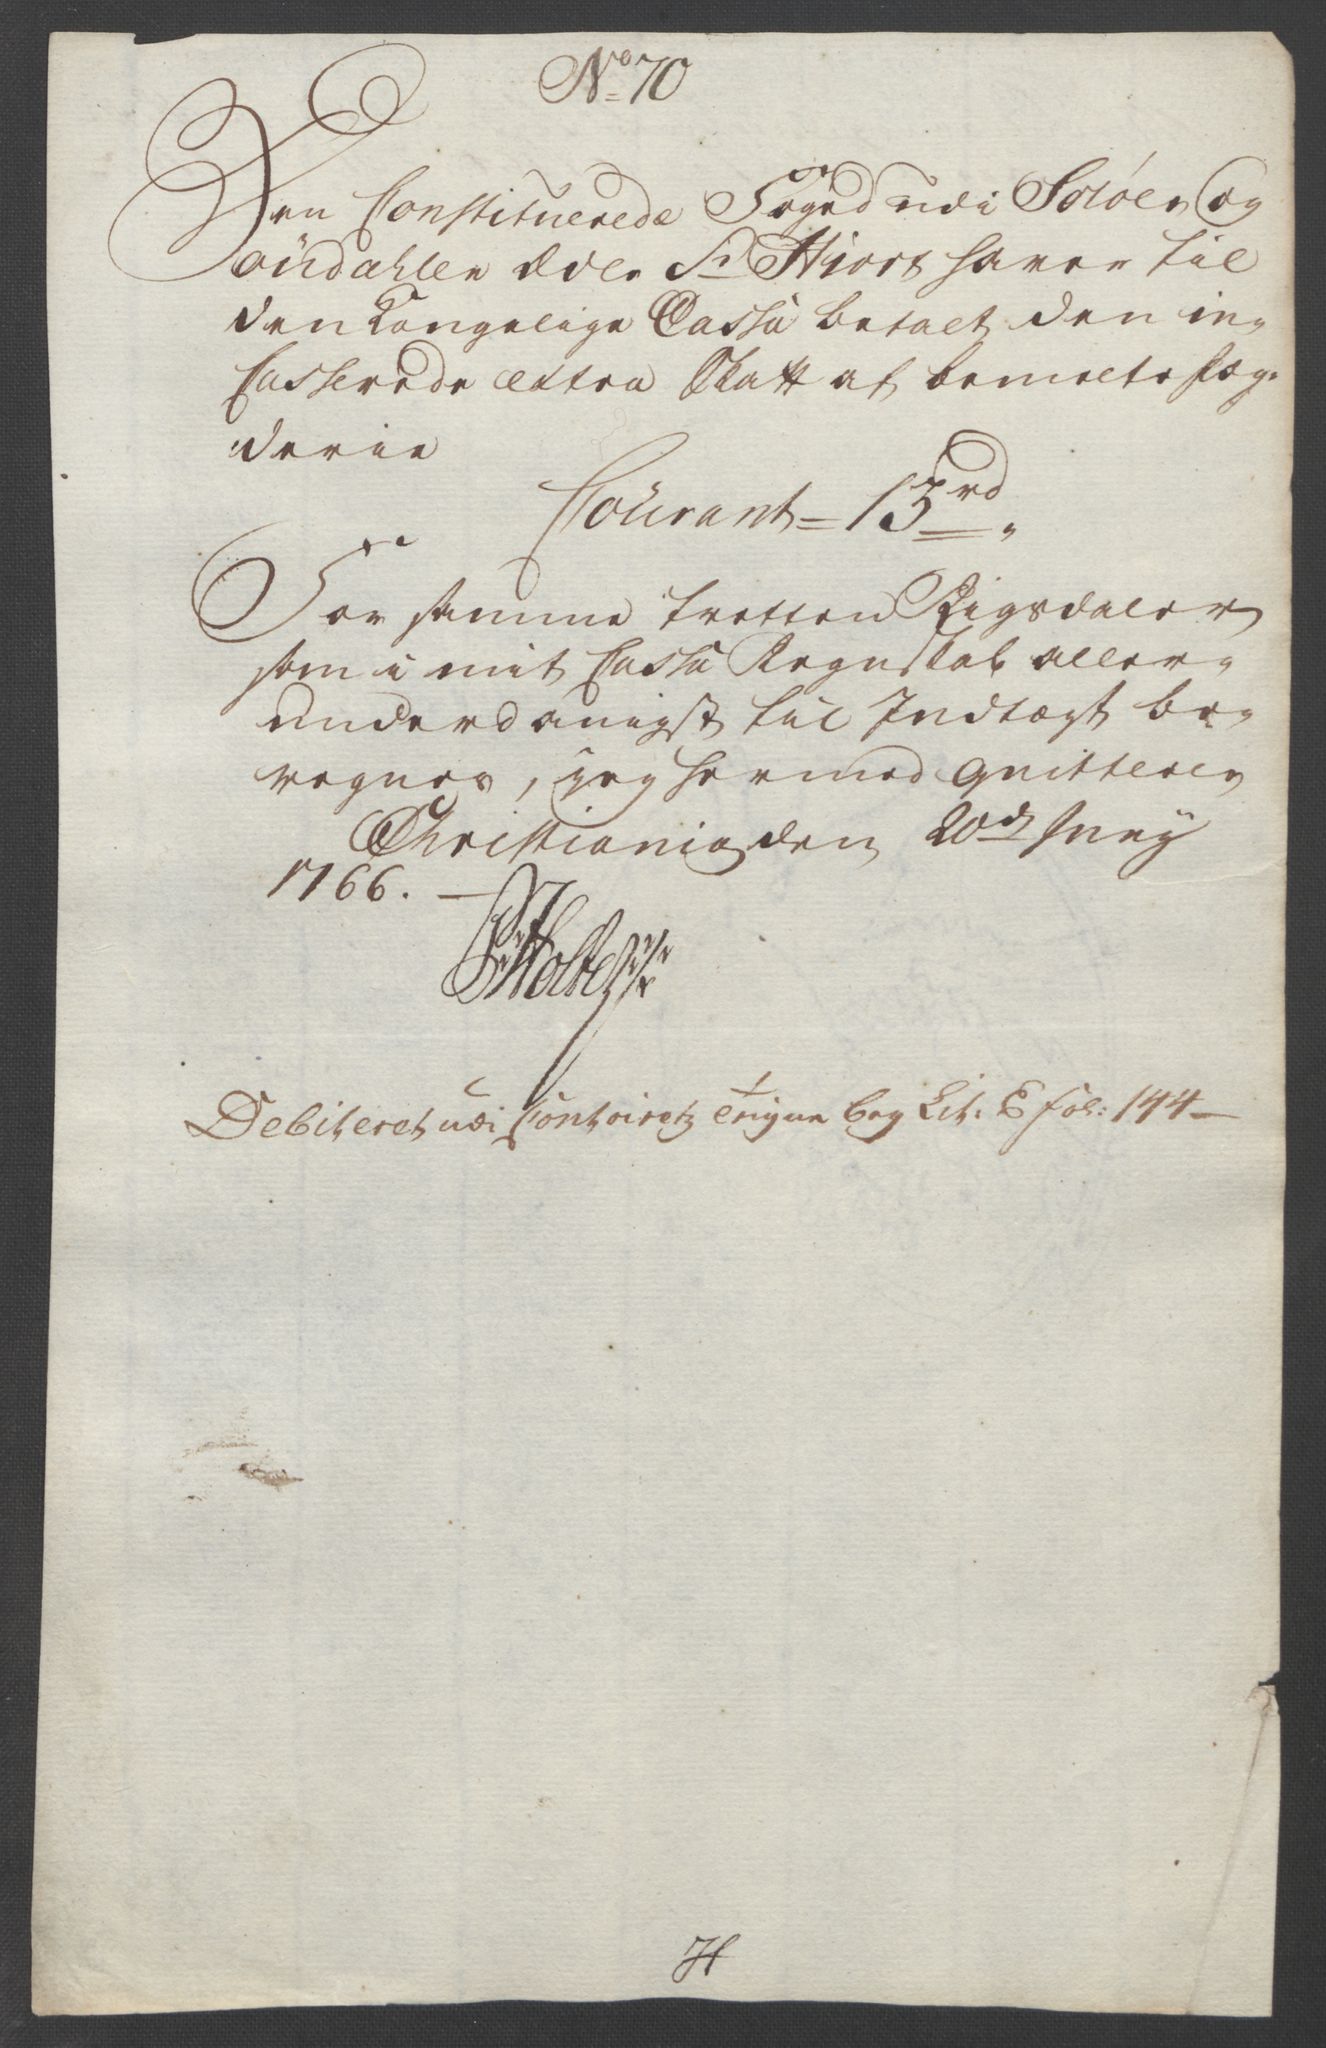 No 70
Den Constituerede Foged udi Soløer og
Oüdahlen Edle Sr Hiort haver til
den Kongelige Cassa betalt den in-
Casserede extra Skatt af bemelte Fog-
derie
Courant = 13 rd
For samme tretten Rigsdaler
som i mit Cassa Regnskab aller-
underdanigst til Indtægt be-
regnes, jeg hermed qvitterer
Christiania den 20de Juny
1766.
Holte
Debiteret udi Contoiretz Eriqve bog Lit: E fol: 144
H